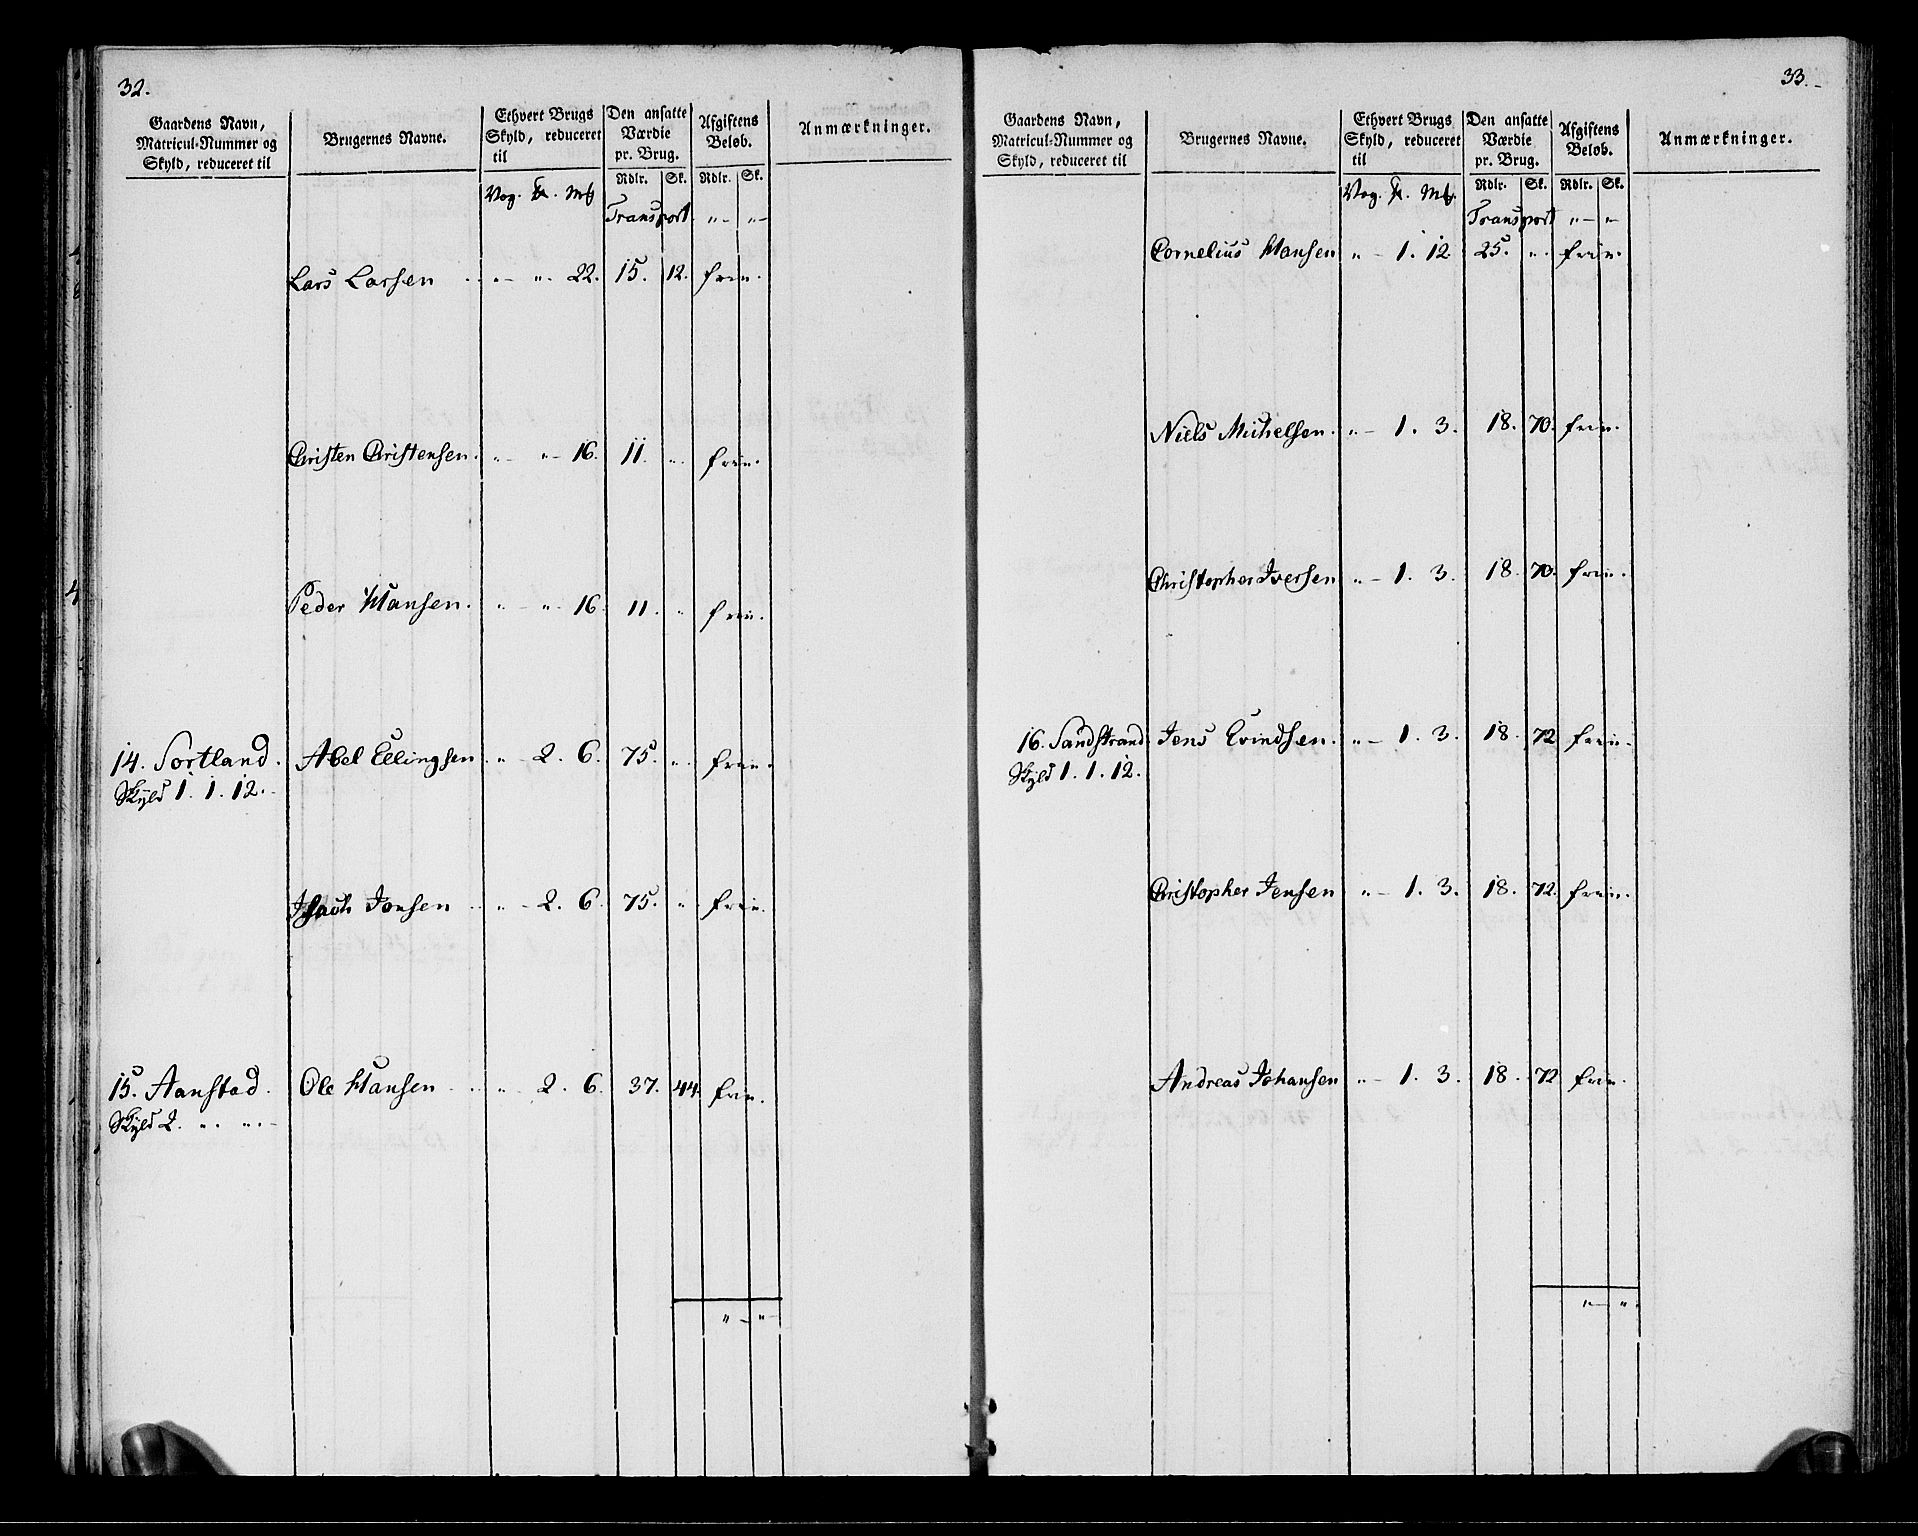 32.
Gaardens Navn, Matricul-Nummer og Skyld, reduceret til | Brugernes Navne. | Ethvert Brugs Skyld, reduceret til | Den ansatte Værdie pr. Brug. | Afgiftens Beløb. | Anmærkninger.
Vog. . M | Rdlr. | Sk. | Rdlr. | Sk.
Transport " — "
Lars Larsen " — " 22. 15. 12. frie.
Christen Christensen. " — " 16. 11. " frie.
Peder Hansen. " — " 16. 11. " frie.
14. Sortland. Abel Ellingsen " — 2. 6. 75. " frie.
Skyld 1. 1. 12.
Isach Jonsen " — 2. 6. 75. " frie.
15. Aanstad. Ole Hansen " 2. 6. 37. 44. frie.
Skyld 2. " . " . —
" — "
33.
Gaardens Navn, Matricul-Nummer og Skyld, reduceret til | Brugernes Navne. | Ethvert Brugs Skyld, reduceret til | Den ansatte Værdie pr. Brug. | Afgiftens Beløb. | Anmærkninger.
Vog. . M | Rdlr. | Sk. | Rdlr. | Sk.
Transport " — "
Cornelius Hansen " — 1. 12. 25. " frie.
Niels Michelsen. " — 1. 3. 18. 70. frie.
Christopher Iversen " — 1. 3. 18. 70. frie.
16. Sandstrand Jens Evindsen. " — 1. 3. 18. 72 frie.
Skyld 1. 1. 12.
Christopher Jensen " — 1. 3. 18. 72. frie.
Andreas Johansen " — 1. 3. 18. 72 frie.
" — "